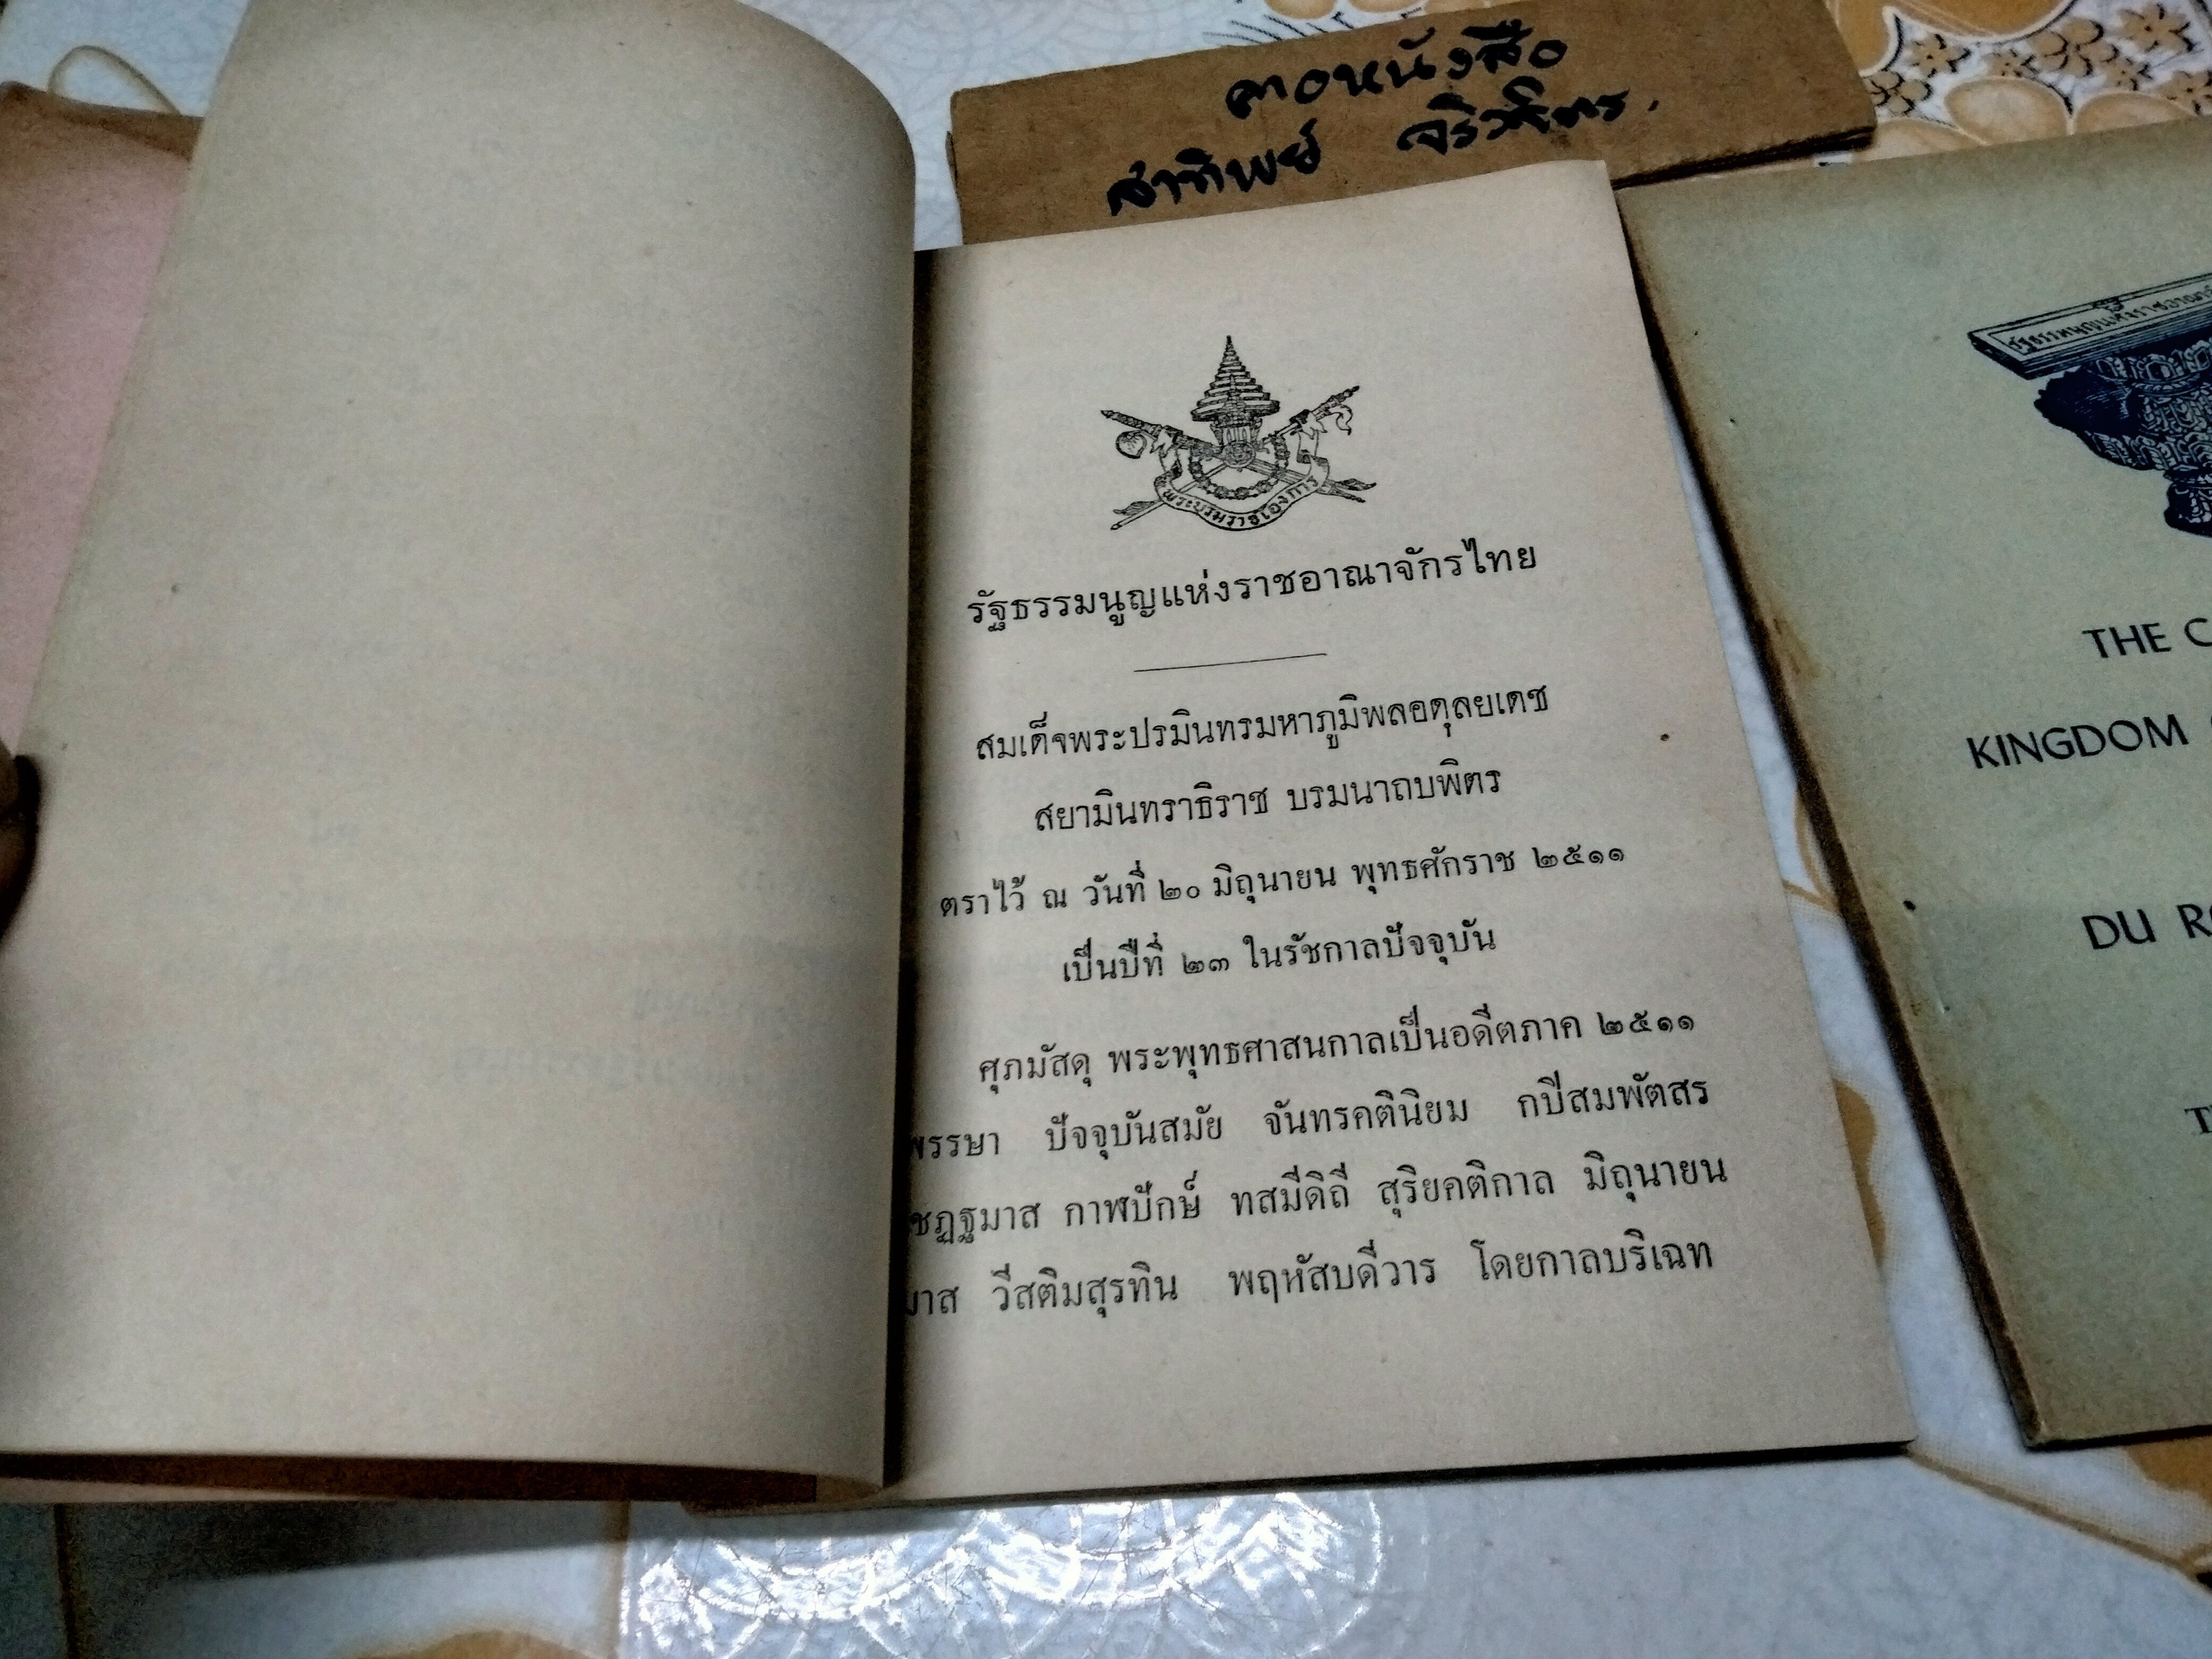 คอหนังสือ
สาทิพย์ จิรวิจิตร.
พระบรมราชโองการ
รัฐธรรมนูญแห่งราชอาณาจักรไทย
สมเด็จพระปรมินทรมหาภูมิพลอดุลยเดช
สยามินทราธิราช บรมนาถบพิตร
ตราไว้ ณ วันที่ ๒๐ มิถุนายน พุทธศักราช ๒๕๑๑
เป็นปีที่ ๒๓ ในรัชกาลปัจจุบัน
ศุภมัสดุ พระพุทธศาสนกาลเป็นอดีตภาค ๒๕๑๑
พรรษา ปัจจุบันสมัย จันทรคตินิยม กปีสมพัตสร
ชฏฐมาส กาฬปักษ์ ทสมีดิถี สุริยคติกาล มิถุนายน
มาส วีสติมสุรทิน พฤหัสบดีวาร โดยกาลบริเฉท
รัฐธรรมนูญแห่งราชอาณา
THE C
KINGDOM
DU R
T